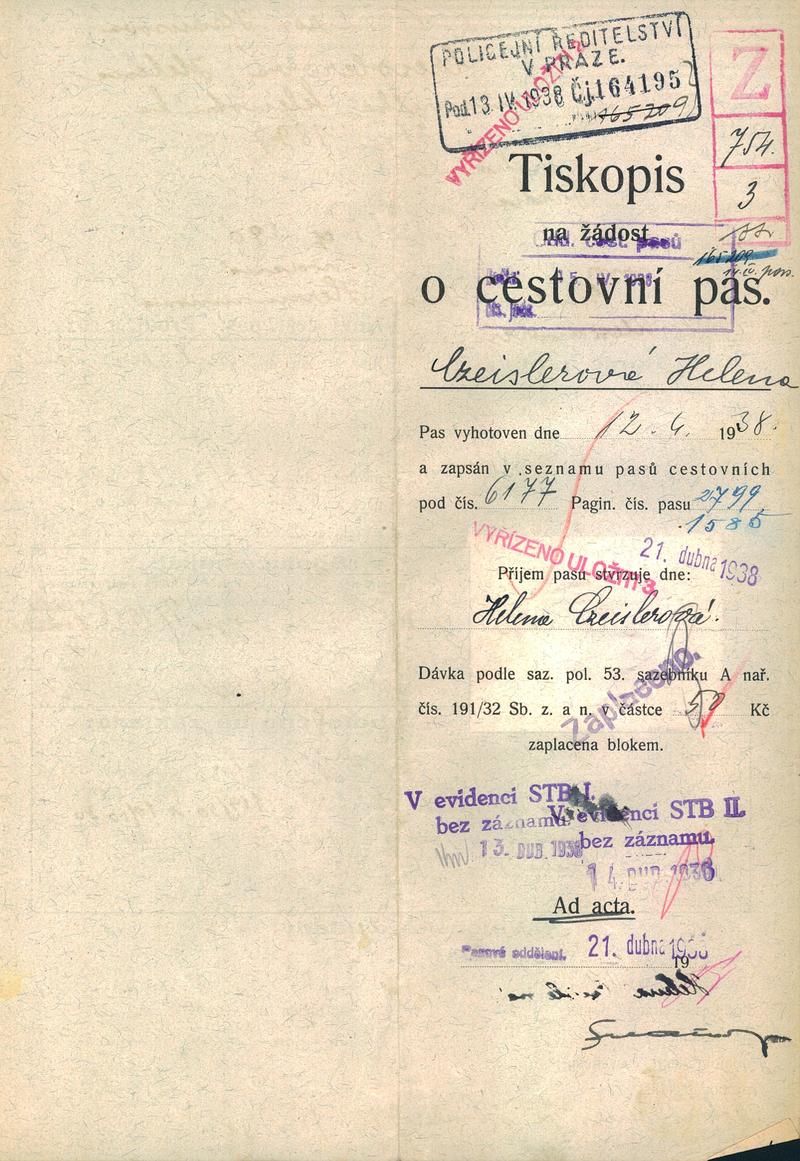 POLICEJNÍ ŘEDITELSTVÍ
V PRAZE.
Pod. 13 IV. 1938 Čj 164195
165209
VYŘÍZENO ULOŽIT 3
Z
754.
3
Tiskopis
na žádost
Odd. cest. pasů
165209
14.IV.
15. IV. 1938
o cestovní pas.
Czeislerová Helena
Pas vyhotoven dne 12. 4. 1938.
a zapsán v seznamu pasů cestovních
pod čís. 6177 Pagin. čís. pasu 2799
1585
VYŘÍZENO ULOŽIT 3
21. dubna 1938
Příjem pasu stvrzuje dne:
Helena Czeislerová.
Dávka podle saz. pol. 53. sazebníku A nař.
Zaplaceno.
čís. 191/32 Sb. z. a n. v částce 50 Kč
zaplacena blokem.
V evidenci STB I.
bez záznamu.
13. DUB. 1938
V evidenci STB II.
bez záznamu.
14. DUB 1938
Ad acta.
Pasové oddělení. 21. dubna 1938
19